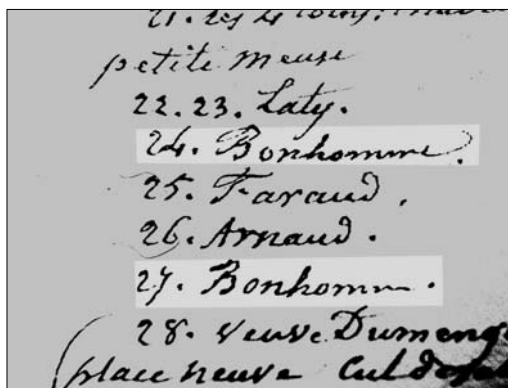 21. les 4 coins;
petite meuse
22. 23. Laty.
24. Bonhomme.
25. Faraud.
26. Arnaud.
27. Bonhomme.
28. Veuve Dumenge
place neuve